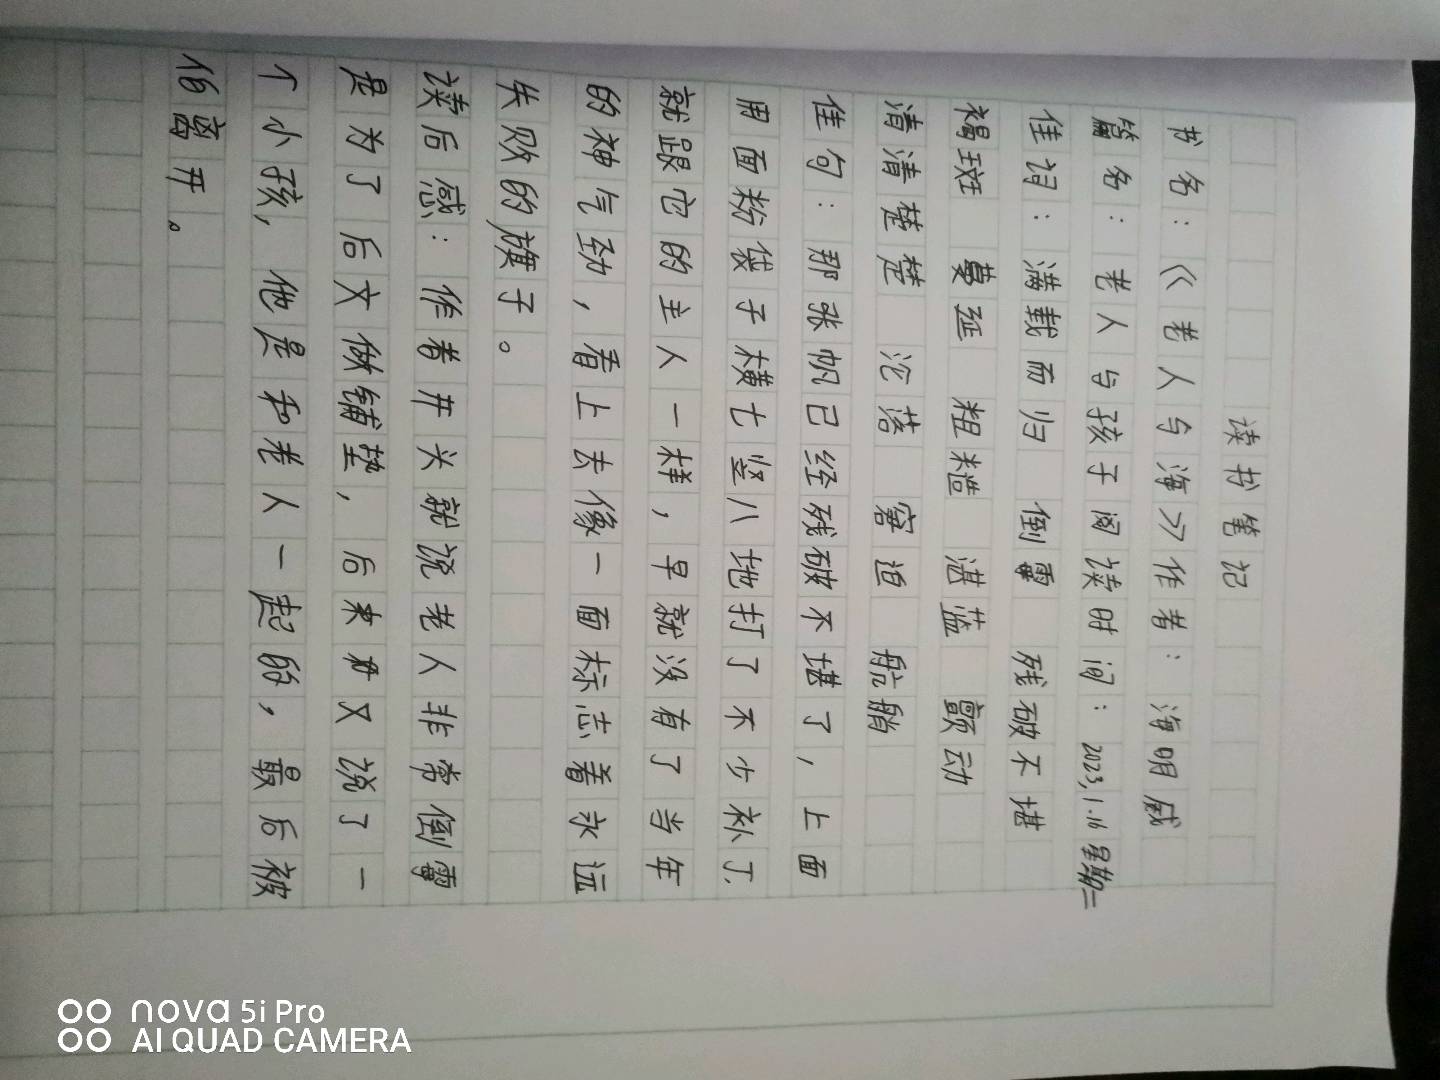 读书笔记
书名：《老人与海》作者：海明威
篇名：老人与孩子阅读时间：2023,1.16星期二
佳词：满载而归 倒霉 残破不堪
褐斑 蔓延 粗糙 湛蓝 颤动
清清楚楚 沦落 窘迫 船艄
佳句：那张帆已经残破不堪了，上面
用面粉袋子横七竖八地打了不少补丁.
就跟它的主人一样，早就没有了当年
的神气劲，看上去像一面标志着永远
失败的旗子。
读后感：作者开头就说老人非常倒霉
是为了后文做铺垫，后来又说了一
个小孩，他是和老人一起的，最后被
迫离开。
nova 5i Pro
AI QUAD CAMERA